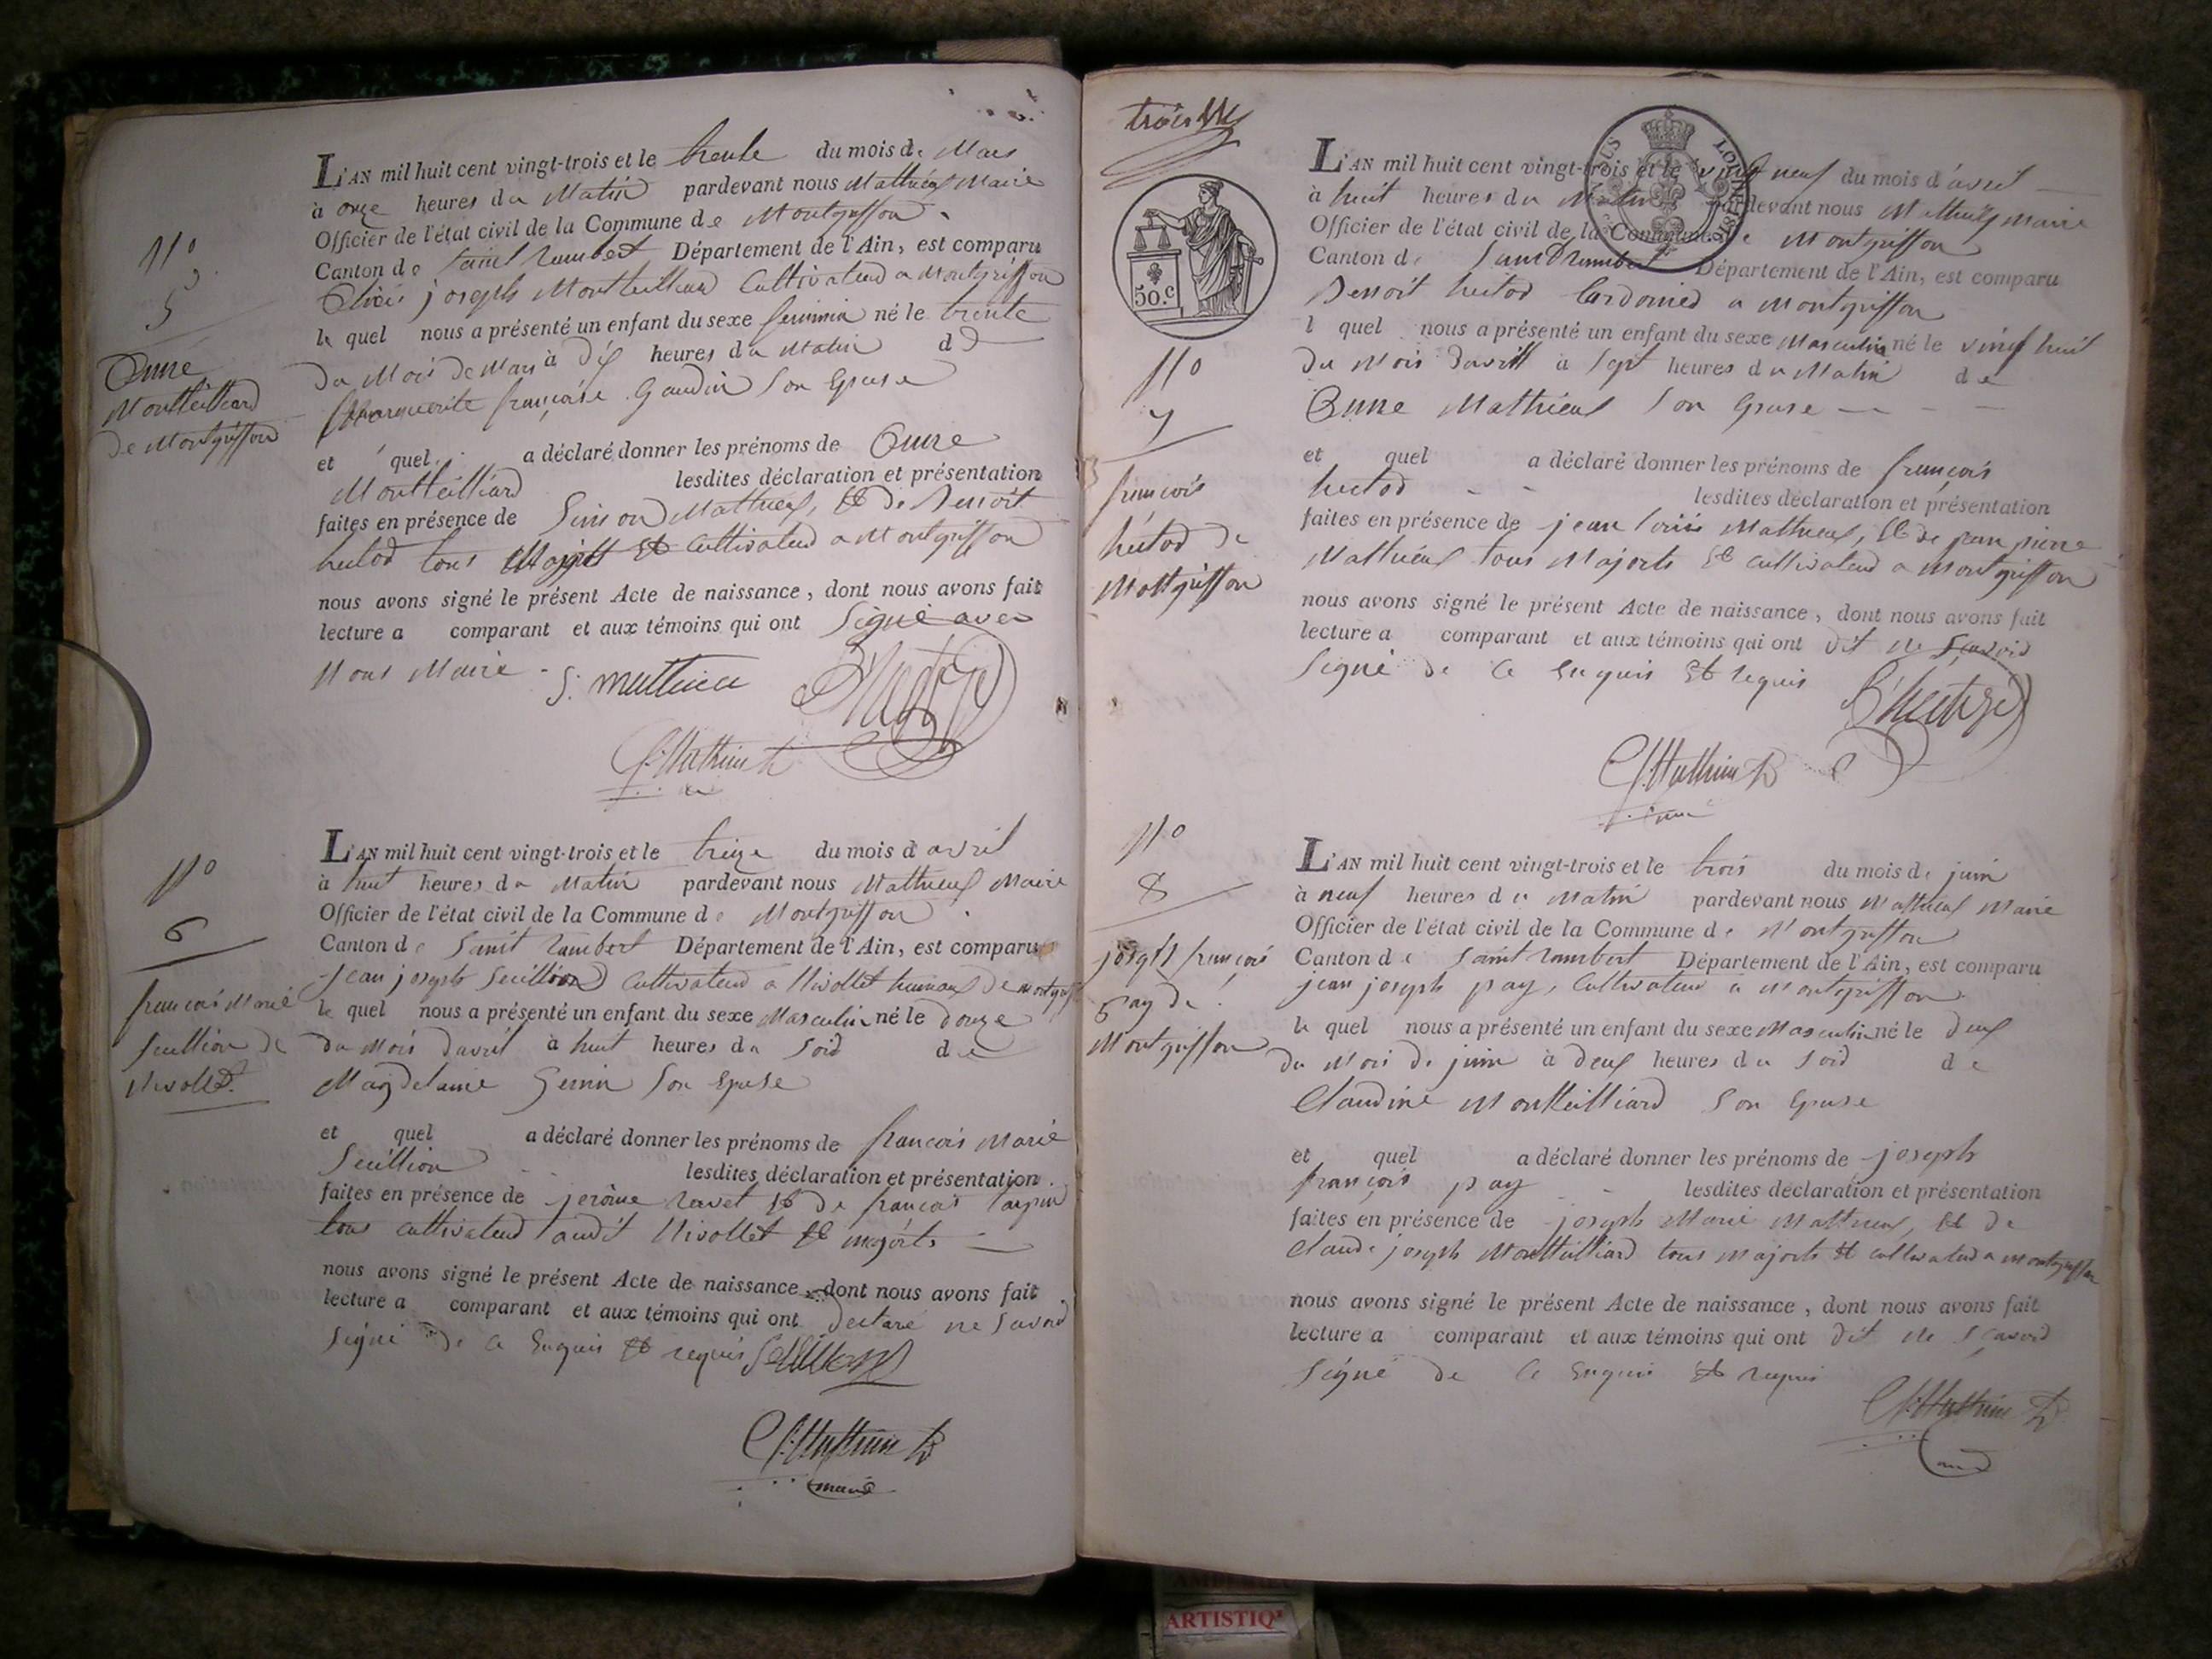 L'AN mil huit cent vingt-trois et le trente du mois de Mars
à onze heures du Matin pardevant nous Mathieux Maire
Officier de l'état civil de la Commune de Montgriffon
Canton de Saint Rambert Département de l'Ain, est comparu
joseph Montteilliard Cultivateur a Montgriffon
le quel nous a présenté un enfant du sexe feminin né le trente
du Mois de Mars à dix heures du Matin d
Marguerite françoise Gaudin Son Epouse
et quel a déclaré donner les prénoms de Anne
Montteilliard lesdites déclaration et présentation
faites en présence de Simon Mathieux, et de Benoit
hector tous Majort et Cultivateur a Montgriffon
nous avons signé le présent Acte de naissance, dont nous avons fait
lecture a comparant et aux témoins qui ont Signé avec
Nous Maire
S: mathieu
N°
5
Anne
Montteilliard
de Montgriffon
L'AN mil huit cent vingt-trois et le treize du mois d avril
à huit heures du Matin pardevant nous Mathieux Maire
Officier de l'état civil de la Commune de Montgriffon
Canton de Saint Rambert Département de l'Ain, est comparu
jean joseph Seuillion Cultivateur a Nivollet hameau de
le quel nous a présenté un enfant du sexe Masculin né le Douze
du Mois davril à huit heures du Soir de
Magdelaine Genin Son Epouse
et quel a déclaré donner les prénoms de françois Marie
Seuillion lesdites déclaration et présentation
faites en présence de jerôme ravet et de françois
tous cultivateur audit Nivollet et majorts
nous avons signé le présent Acte de naissance, dont nous avons fait
lecture a comparant et aux témoins qui ont declaré ne Savoir
Signé De Ce Enquis et requis
maire
N°
6
françois Marie
Seuillion de
Nivollet
trois
50.c
LOUIS
L'AN mil huit cent vingt-trois et le vingt neuf du mois d'avril
à huit heures du Matin pardevant nous Mathieux Maire
Officier de l'état civil de la Commune de Montgriffon
Canton de Saint Rambert Département de l'Ain, est comparu
Benoit hector Cordonier a Montgriffon
l quel nous a présenté un enfant du sexe Masculin né le vingt huit
du Mois Davrill à Sept heures du Matin de
Anne Mathieux Son Epouse
et quel a déclaré donner les prénoms de françois
hector lesdites déclaration et présentation
faites en présence de jean Louis Mathieux, et de jean pierre
Mathieux tous Majorts et cultivateur a Montgriffon
nous avons signé le présent Acte de naissance, dont nous avons fait
lecture a comparant et aux témoins qui ont dit ne Sçavoir
Signé de Ce Enquis Et requis
N°
7
françois
hector de
Montgriffon
L'AN mil huit cent vingt-trois et le trois du mois de juin
à neuf heures du Matin pardevant nous Mathieux Maire
Officier de l'état civil de la Commune de Montgriffon
Canton de Saint rambert Département de l'Ain, est comparu
jean joseph pay, Cultivateur a Montgriffon
le quel nous a présenté un enfant du sexe Masculin né le deux
du Mois de juin à deux heures du Soir de
Claudine Montteilliard Son Epouse
et quel a déclaré donner les prénoms de joseph
françois pay lesdites déclaration et présentation
faites en présence de joseph Marie Mathieux, et de
Claude joseph Montteilliard tous majorts et cultivateur a Montgriffon
nous avons signé le présent Acte de naissance, dont nous avons fait
lecture a comparant et aux témoins qui ont dit ne Sçavoir
Signé de Ce Enquis et requis
N°
8
joseph françois
pay de
Montgriffon
ARTISTIQ